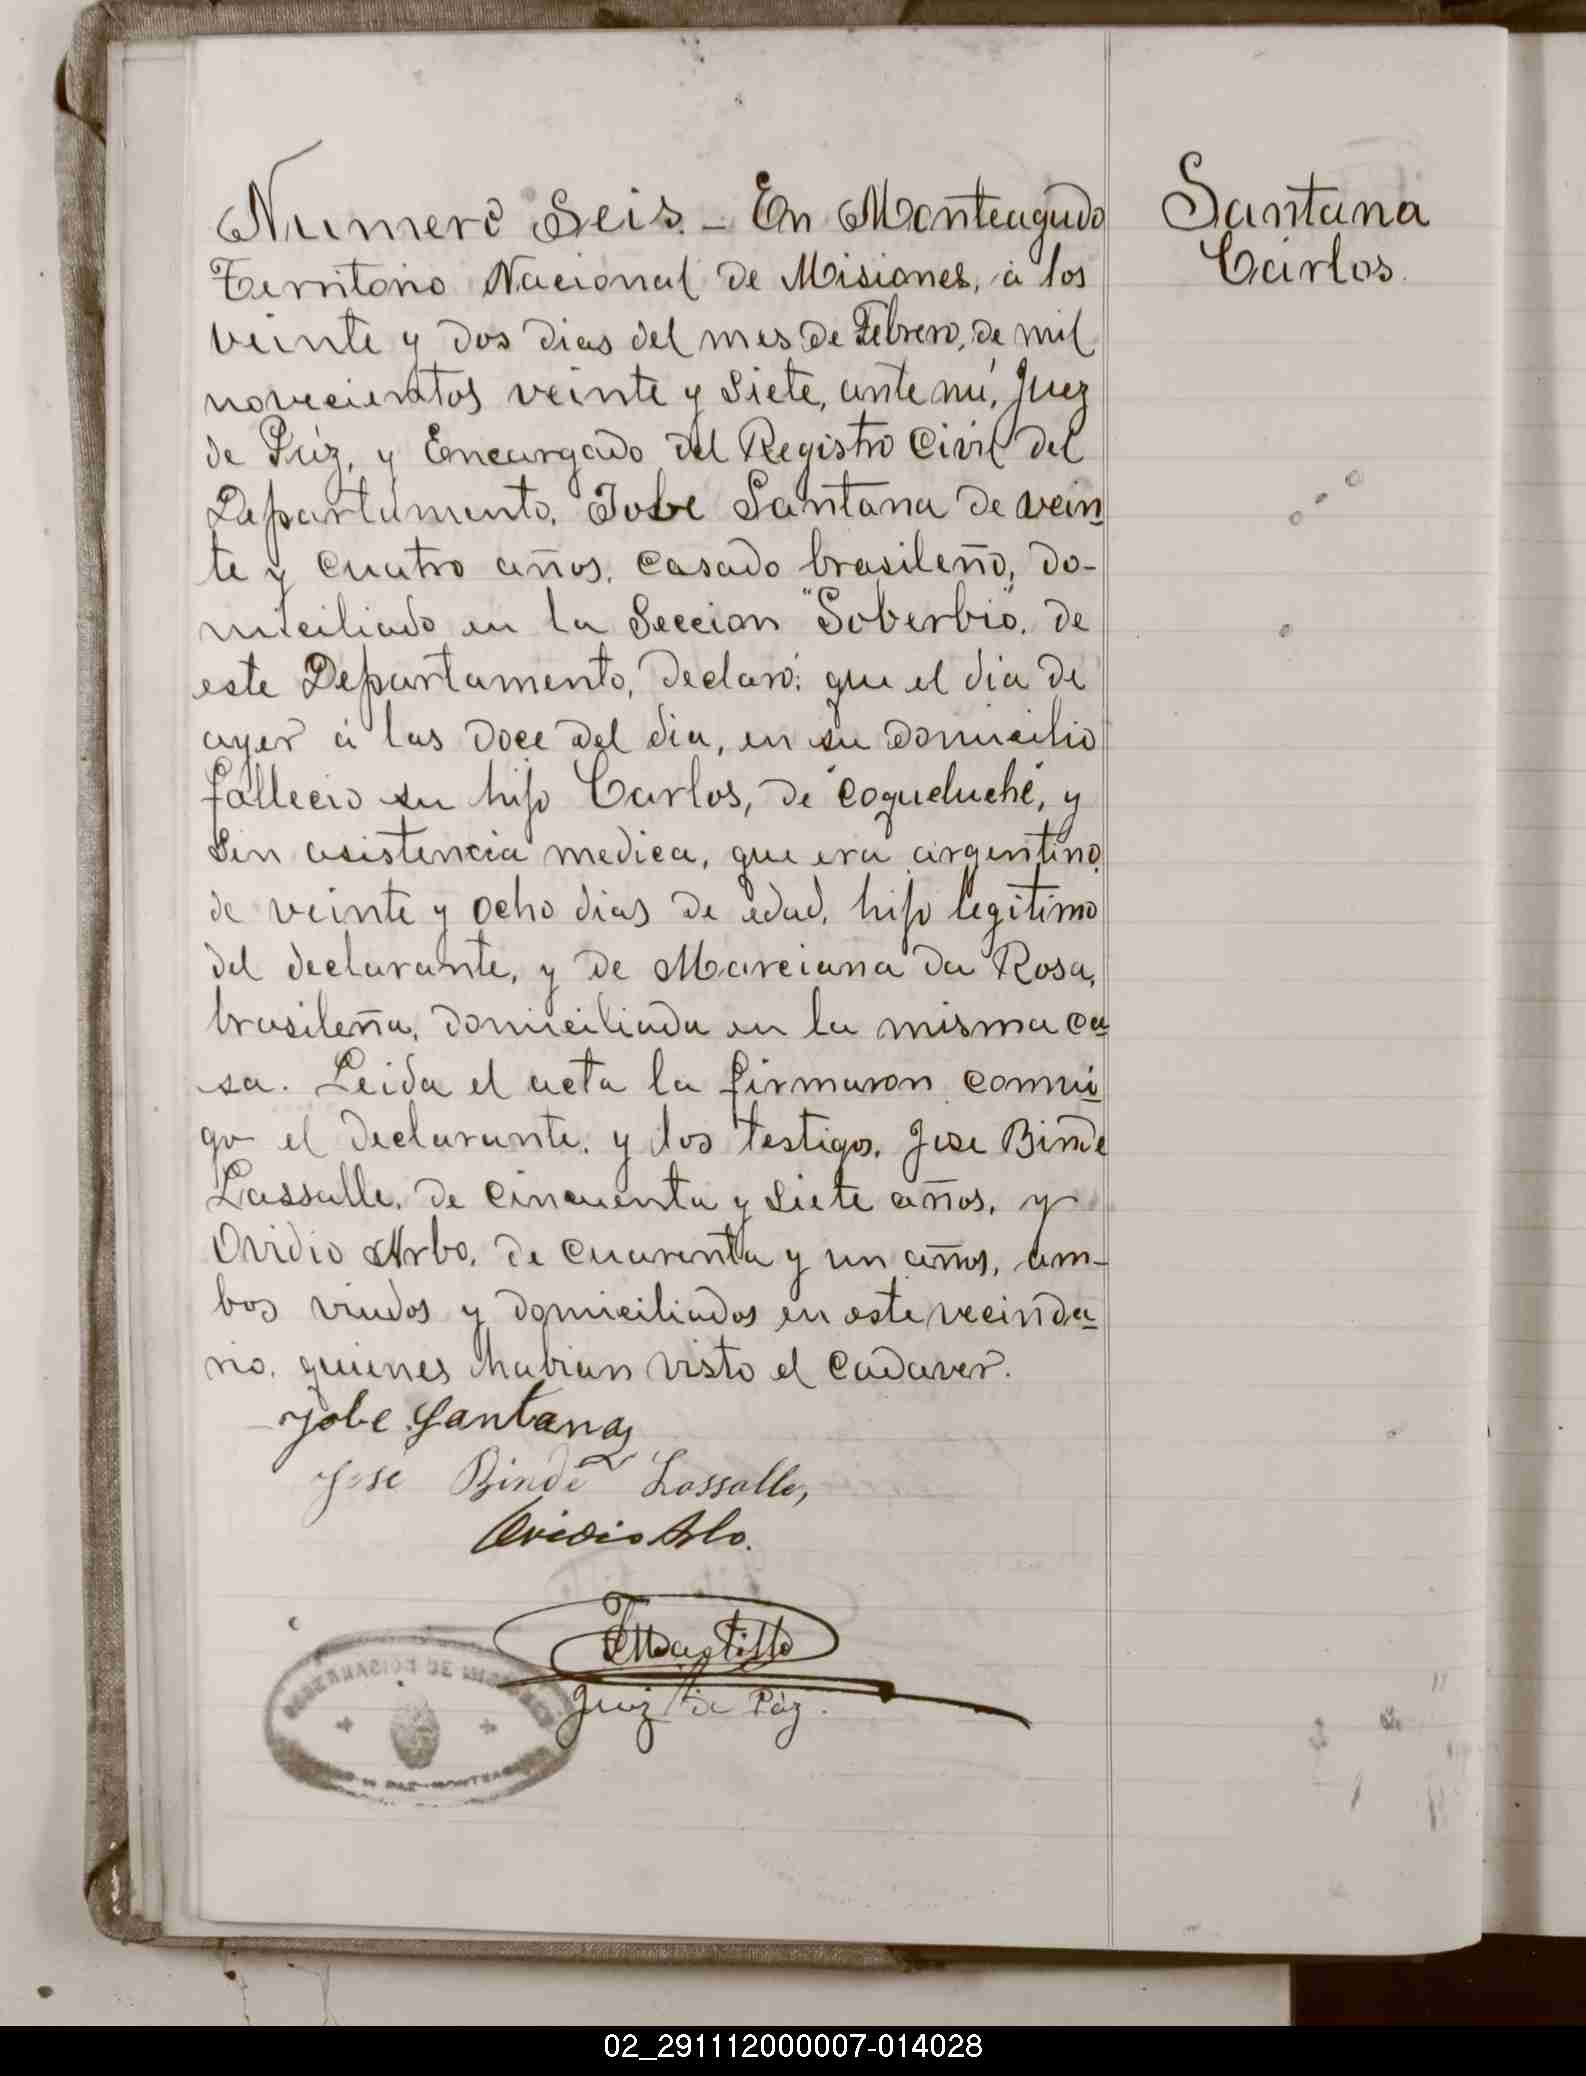 Numero Seis. – En Monteagudo
Territorio Nacional de Misiones, á los
veinte y dos dias del mes de Febrero, de mil
novecientos veinte y siete, ante mí, Juez
de Páz, y Encargado del Registro Civil del
Departamento, Jobe Santana de vein
te y cuatro años, casado brasileño, do-
miciliado en la Seccion "Soberbio", de
este Departamento, declaró: que el dia de
ayer á las doce del dia, en su domicilio
falleció su hijo Carlos, de "coqueluche", y
sin asistencia medica, que era argentino,
de veinte y ocho dias de edad, hijo legitimo
del declarante, y de Marciana da Rosa,
brasileña, domiciliada en la misma ca
sa. Leida el acta la firmaron conmi
go el declarante, y los testigos, Jose Binde
Lassalle, de cincuenta y siete años, y
Ovidio Arbo, de cuarenta y un años, am-
bos viudos y domiciliados en este vecinda
rio, quienes habian visto el cadaver.
Jobe Santana
José Binde Lassalle,
Ovidio Arbo.
Juez de Páz.
GOBERNACION DE MISIONES
DE PAZ-MONTEAGUDO
Santana
Carlos.
02_291112000007-014028